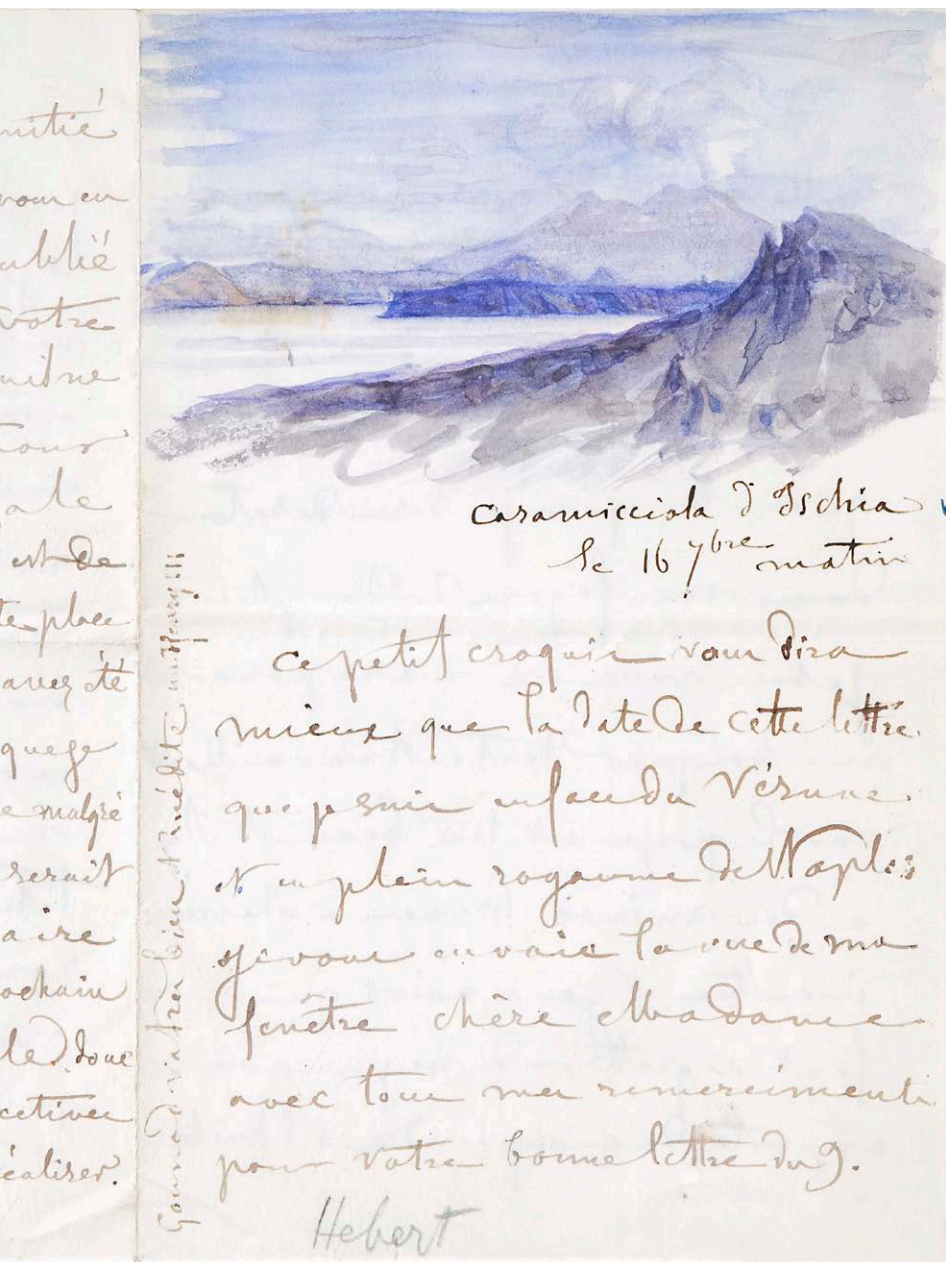 mitié
vous en
ublié
votre
Cour
ale
est de
te place
avez été
que je
e malgré
serait
aire
ochain
le) donc
ectives
éaliser.
Casamicciola d'Ischia
le 16 7bre matin
ce petit croquis vous dira
mieux que la date de cette lettre
que je suis en face du Vésuve
et en plein royaume de Naples
je vous envoie la vue de ma
fenêtre chère Madame
avec tous mes remerciments
pour votre bonne lettre du 9.
Hebert
Gounod va très bien et médite un Henry!!!